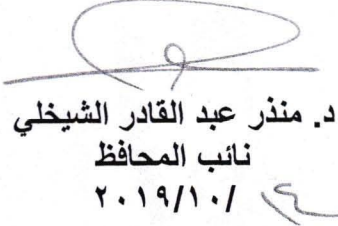 د. منذر عبد القادر الشيخلي
نائب المحافظ
٢٠١٩/١٠/